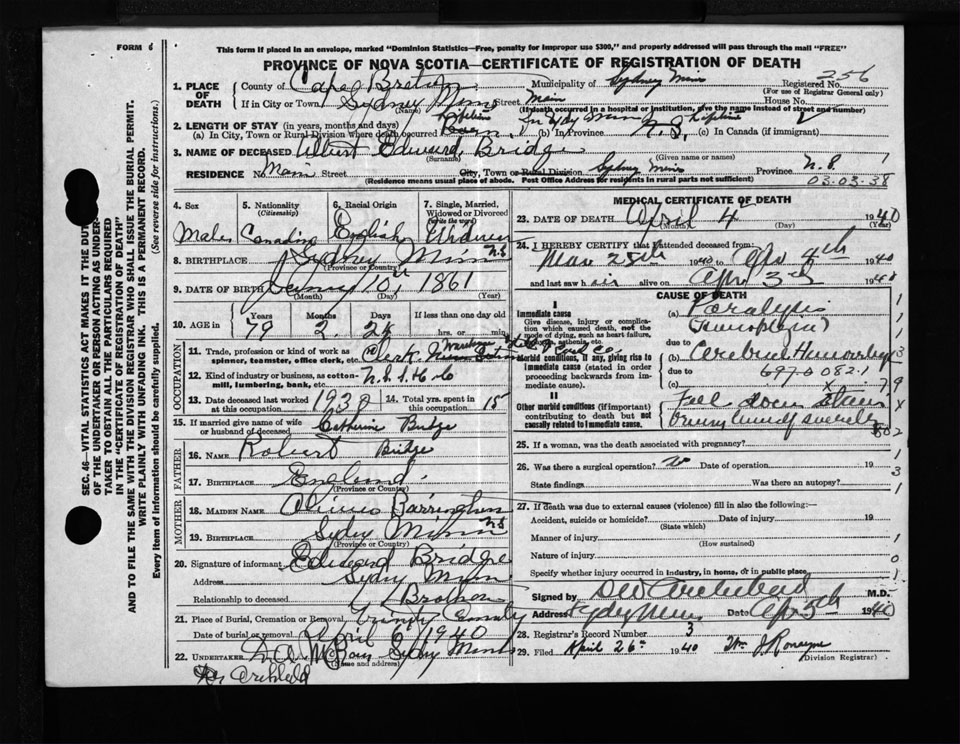 FORM 6
This form if placed in an envelope, marked "Dominion Statistics—Free, penalty for improper use $300," and properly addressed will pass through the mail "FREE"
PROVINCE OF NOVA SCOTIA—CERTIFICATE OF REGISTRATION OF DEATH
SEC. 46—VITAL STATISTICS ACT MAKES IT THE DUTY
OF THE UNDERTAKER OR PERSON ACTING AS UNDER-
TAKER TO OBTAIN ALL THE PARTICULARS REQUIRED
IN THE "CERTIFICATE OF REGISTRATION OF DEATH"
AND TO FILE THE SAME WITH THE DIVISION REGISTRAR WHO SHALL ISSUE THE BURIAL PERMIT.
WRITE PLAINLY WITH UNFADING INK. THIS IS A PERMANENT RECORD.
Every item of Information should be carefully supplied. (See reverse side for instructions.)
1. PLACE OF DEATH
County of Cape Breton Municipality of Sydney Mines Registered No. 256
(For use of Registrar General only)
If in City or Town Sydney Mines Street Main House No.
(Name) (If death occurred in a hospital or institution, give the name instead of street and number)
2. LENGTH OF STAY (in years, months and days)
(a) In City, Town or Rural Division where death occurred (b) In Province N.S. (c) In Canada (if immigrant)
3. NAME OF DECEASED Albert Edward Bridge
(Surname) (Given name or names)
RESIDENCE No. Main Street City, Town or Rural Division Sydney Mines Province N.S
(Residence means usual place of abode. Post Office Address for residents in rural parts not sufficient)
03-03-38
4. Sex Male
5. Nationality (Citizenship) Canadian
6. Racial Origin English
7. Single, Married, Widowed or Divorced (write the word) Widower
8. BIRTHPLACE Sydney Mines N.S
(Province or Country)
9. DATE OF BIRTH 10, 1861
(Month) (Day) (Year)
10. AGE in Years 79 Months 2 Days If less than one day old hrs. or min.
OCCUPATION
11. Trade, profession or kind of work as spinner, teamster, office clerk, etc. Clerk
12. Kind of industry or business, as cotton-mill, lumbering, bank, etc.
13. Date deceased last worked at this occupation 1938
14. Total yrs. spent in this occupation 15
15. If married give name of wife or husband of deceased Catherine Bridge
FATHER
16. Name Robert Bridge
17. Birthplace England
(Province or Country)
MOTHER
18. MAIDEN NAME Barrington
19. Birthplace Sydney Mines N.S
(Province or Country)
20. Signature of informant Edward Bridge
Address Sydney Mines
Relationship to deceased Brother
21. Place of Burial, Cremation or Removal Trinity
Date of burial or removal April 6 1940
22. UNDERTAKER Sydney Mines
(Name and address)
Archibald
MEDICAL CERTIFICATE OF DEATH
23. DATE OF DEATH April 4th 1940
(Month) (Day) (Year)
24. I HEREBY CERTIFY that I attended deceased from:
Mar 28th 1940 to Apr 4th 1940
and last saw h im alive on Apr 3rd 1940
CAUSE OF DEATH
I
Immediate cause
Give disease, injury or complication which caused death, not the mode of dying, such as heart failure, asphyxia, asthenia, etc.
(a) Paralysis
(Hemiplegia)
due to
Morbid conditions, if any, giving rise to immediate cause (stated in order proceeding backwards from immediate cause).
(b) Cerebral Hemorrhage
due to
(c)
II
Other morbid conditions (if important) contributing to death but not causally related to immediate cause.
Fall down stairs
25. If a woman, was the death associated with pregnancy?
26. Was there a surgical operation? Date of operation 19
State findings Was there an autopsy?
27. If death was due to external causes (violence) fill in also the following:—
Accident, suicide or homicide? Date of injury 19
(State which)
Manner of injury
(How sustained)
Nature of injury
Specify whether injury occurred in industry, in home, or in public place
Signed by Archibald M.D.
Address Sydney Mines Date Apr 5th 1940
28. Registrar's Record Number 3
29. Filed April 26th 1940 Wm J. Ronayne
(Division Registrar)